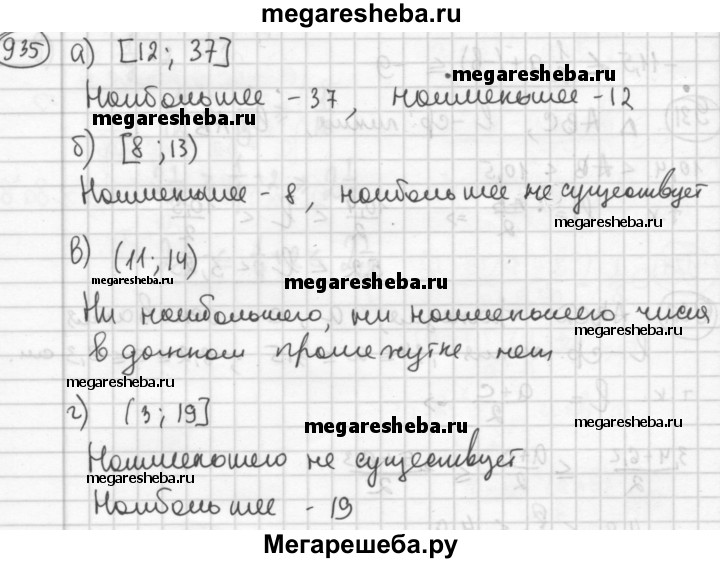 megaresheba.ru
935 а) [12; 37]
megaresheba.ru
Наибольшее - 37, наименьшее - 12
megaresheba.ru
б) [8; 13)
Наименьшее - 8, наибольшее не существует
megaresheba.ru
в) (11; 14)
megaresheba.ru megaresheba.ru
Ни наибольшего, ни наименьшего числа
megaresheba.ru
в данном промежутке нет
megaresheba.ru
г) (3; 19]
megaresheba.ru
Наименьшего не существует
megaresheba.ru megaresheba.ru
Наибольшее - 19
Мегарешеба.ру